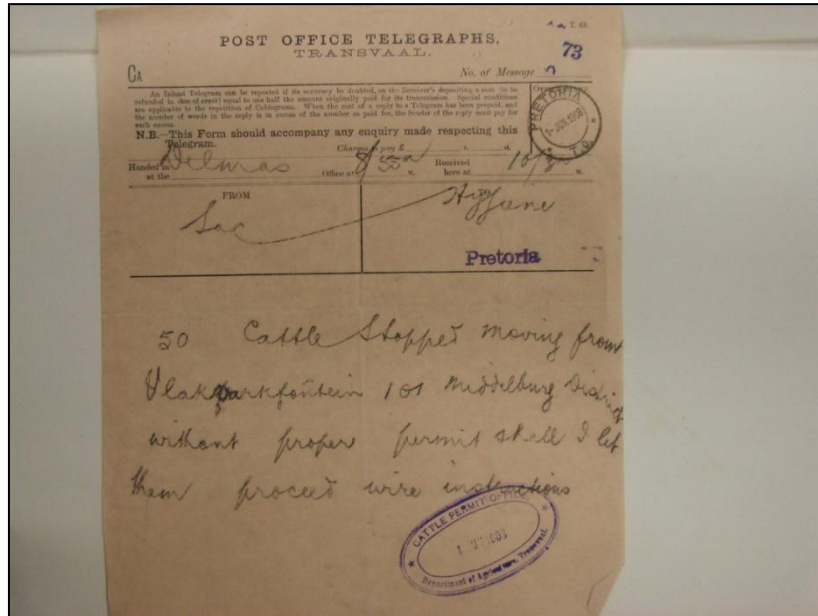 POST OFFICE TELEGRAPHS,
TRANSVAAL.
73
CA
No. of Message
An Inland Telegram can be repeated if its accuracy be doubted, on the Receiver's depositing a sum (to be
refunded in case of error) equal to one half the amount originally paid for its transmission. Special conditions
are applicable to the repetition of Cablegrams. When the cost of a reply to a Telegram has been prepaid, and
the number of words in the reply is in excess of the number so paid for, the Sender of the reply must pay for
such excess.
N.B.—This Form should accompany any enquiry made respecting this
Telegram.
Charges to pay £ s. d.
Handed in
at the
Delmas
Office at
Received
here at
FROM
Sac
Hygiene
Pretoria
50 Cattle Stopped moving from
Vlakvarkfontein 101 Middelburg District
without proper permit shall I let
them proceed wire instructions
CATTLE PERMIT OFFICE
Department of Agriculture, Transvaal.